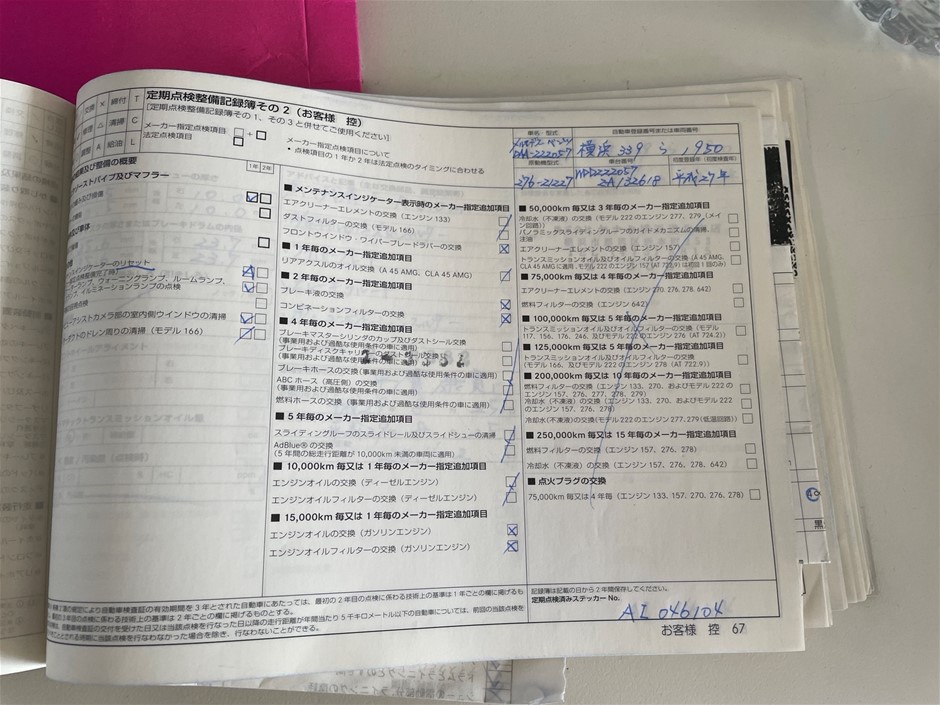 定期点検整備記録簿その2（お客様 控）
[定期点検整備記録簿その1、その3と併せてご使用ください]
交換 × 締付 T
修理 △ 清掃 C
調整 A 給油 L
メーカー指定点検項目 □+□
法定点検項目 □
メーカー指定点検項目について
・点検項目の1年か2年は法定点検のタイミングに合わせる
車名・型式
自動車登録番号または車両番号
DAA-222057
横浜 339 ら 1950
原動機型式
車台番号
初度登録年（初度検査年）
276-21227
WDD222057
2A132618
平成27年
整備の概要
1年 2年
ーストパイプ及びマフラー
ンジケーターのリセット
ーランプ、ウォーニングランプ、ルームランプ、
イルミネーションランプの点検
アシストカメラ部の室内側ウインドウの清掃
フトのドレン周りの清掃（モデル 166）
■ メンテナンスインジケーター表示時のメーカー指定追加項目
エアクリーナーエレメントの交換（エンジン 133）
ダストフィルターの交換（モデル 166）
フロントウインドウ・ワイパーブレードラバーの交換
■ 1 年毎のメーカー指定追加項目
リアアクスルのオイル交換（A 45 AMG、CLA 45 AMG）
■ 2 年毎のメーカー指定追加項目
ブレーキ液の交換
コンビネーションフィルターの交換
■ 4 年毎のメーカー指定追加項目
ブレーキマスターシリンダのカップ及びダストシール交換
（事業用および過酷な使用条件の車に適用）
ブレーキディスクキャリパのダストシール交換
（事業用および過酷な使用条件の車に適用）
ブレーキホースの交換（事業用および過酷な使用条件の車に適用）
ABC ホース（高圧側）の交換
（事業用および過酷な使用条件の車に適用）
燃料ホースの交換（事業用および過酷な使用条件の車に適用）
■ 5 年毎のメーカー指定追加項目
スライディングルーフのスライドレール及びスライドシューの清掃
AdBlue® の交換
（5 年間の総走行距離が 10,000km 未満の車両に適用）
■ 10,000km 毎又は 1 年毎のメーカー指定追加項目
エンジンオイルの交換（ディーゼルエンジン）
エンジンオイルフィルターの交換（ディーゼルエンジン）
■ 15,000km 毎又は 1 年毎のメーカー指定追加項目
エンジンオイルの交換（ガソリンエンジン）
エンジンオイルフィルターの交換（ガソリンエンジン）
■ 50,000km 毎又は 3 年毎のメーカー指定追加項目
冷却水（不凍液）の交換（モデル 222 のエンジン 277、279）（メイン回路）
パノラミックスライディングルーフのガイドメカニズムの清掃、
注油
エアクリーナーエレメントの交換（エンジン 157）
トランスミッションオイル及びオイルフィルターの交換（A 45 AMG、
CLA 45 AMG に適用
■ 75,000km 毎又は 4 年毎のメーカー指定追加項目
エアクリーナーエレメントの交換（エンジン 270、276、278、642）
燃料フィルターの交換（エンジン 642）
■ 100,000km 又は 5 年毎のメーカー指定追加項目
トランスミッションオイル及びオイルフィルターの交換（モデル
117、156、176、246、及びモデル 222 のエンジン 276（AT 724.2））
■ 125,000km 又は 5 年毎のメーカー指定追加項目
トランスミッションオイル及びオイルフィルターの交換
（モデル 166、及びモデル 222 のエンジン 278（AT 722.9））
■ 200,000km 毎又は 10 年毎のメーカー指定追加項目
燃料フィルターの交換（エンジン 133、270、およびモデル 222 の
エンジン 157、276、277、278、279）
冷却水（不凍液）の交換（エンジン 133、270、およびモデル 222
のエンジン 157、276、278）
冷却水（不凍液）の交換（モデル 222 のエンジン 277、279（低温回路））
■ 250,000km 毎又は 15 年毎のメーカー指定追加項目
燃料フィルターの交換（エンジン 157、276、278）
冷却水（不凍液）の交換（エンジン 157、276、278、642）
■ 点火プラグの交換
75,000km 毎又は 4 年毎（エンジン 133、157、270、276、278）
の規定により自動車検査証の有効期間を 3 年とされた自動車にあたっては、最初の 2 年目の点検に係わる技術上の基準は 1 年ごとの欄に掲げるも
の 3 年目の点検に係わる技術上の基準は 2 年ごとの欄に掲げるものとする。
記録簿は記載の日から 2 年間保存してください。
定期点検済みステッカー No.
AI 046104
お客様 控 67